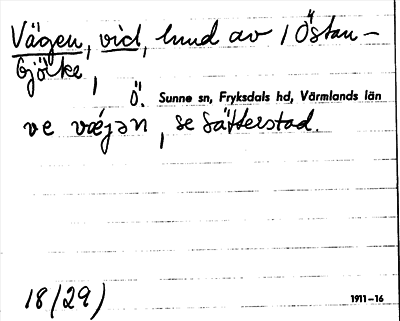 Vägen, vid, lund av / Östan-
bjölke,
Ö. Sunne sn, Fryksdals hd, Värmlands län
ve væ̀jən, se Sätterstad.
18/29)
1911-16